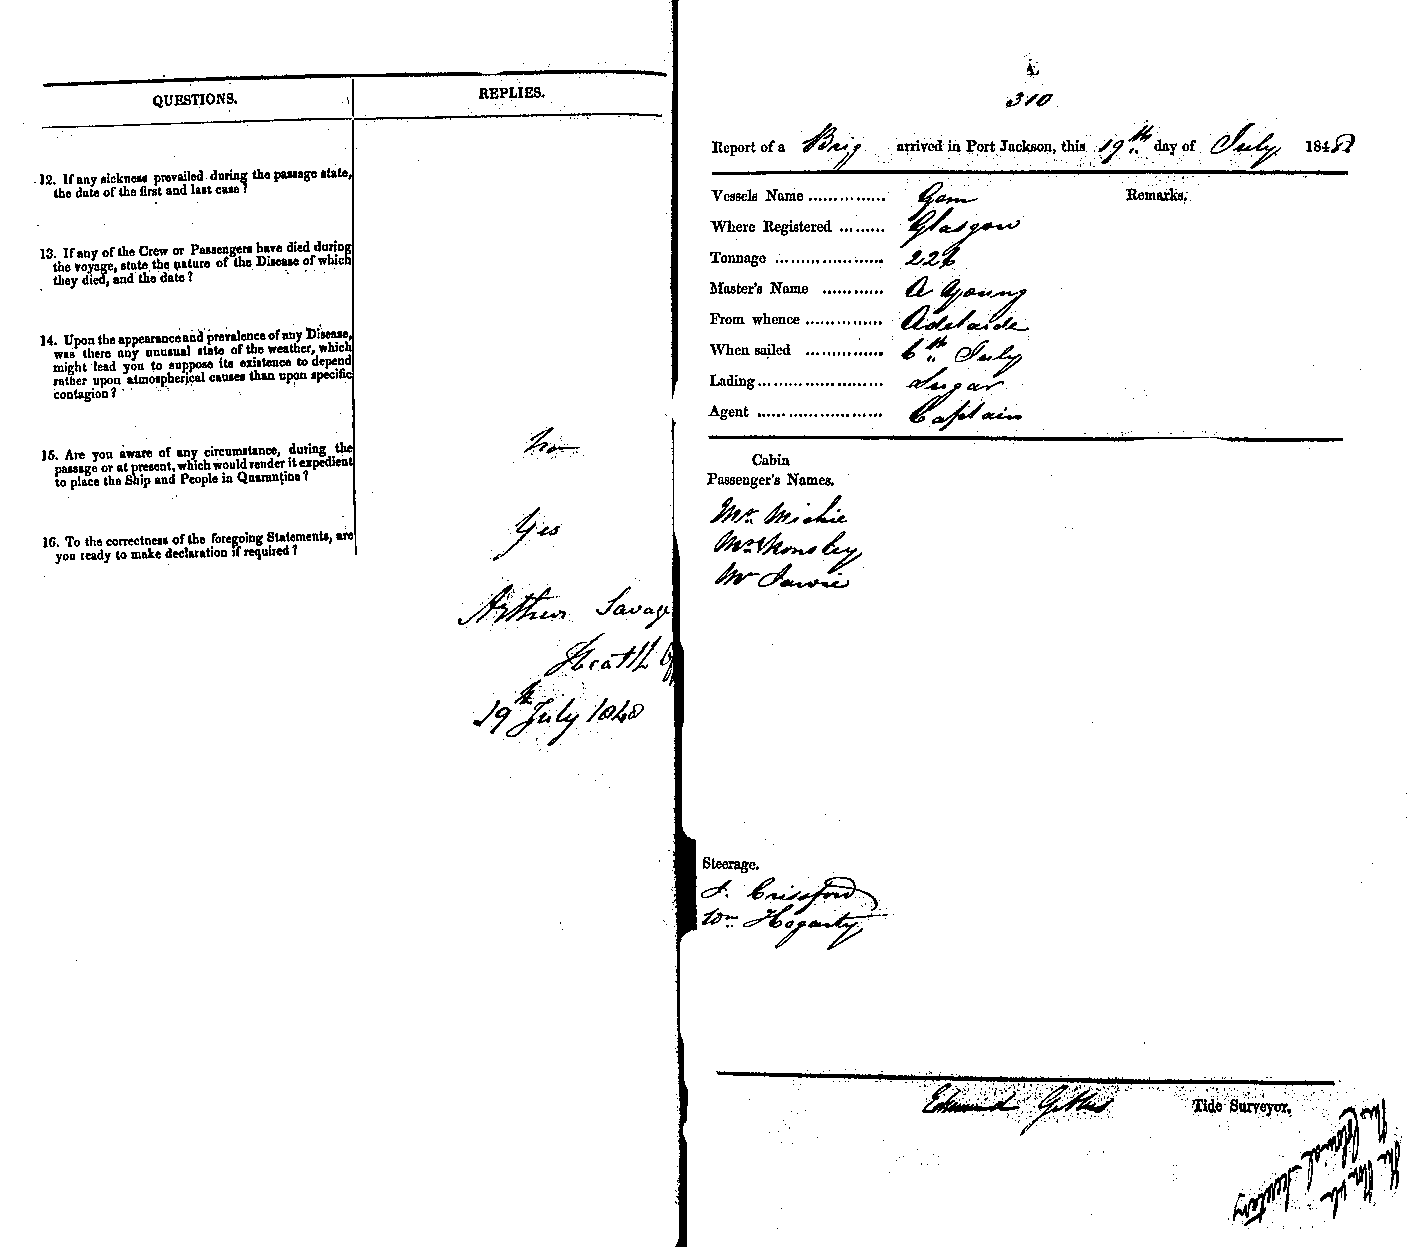 QUESTIONS.
REPLIES.
12. If any sickness prevailed during the passage state,
the date of the first and last case?
13. If any of the Crew or Passengers have died during
the voyage, state the nature of the Disease of which
they died, and the date?
14. Upon the appearance and prevalence of any Disease,
was there any unusual state of the weather, which
might lead you to suppose its existence to depend
rather upon atmospherical causes than upon specific
contagion?
15. Are you aware of any circumstance, during the
passage or at present, which would render it expedient
to place the Ship and People in Quarantine?
No
16. To the correctness of the foregoing Statements, are
you ready to make declaration if required?
Yes
Arthur Savage
Health
19th July 1848
310
Report of a Brig arrived in Port Jackson, this 19th day of July 1848
Vessels Name ............... Gem
Remarks.
Where Registered ......... Glasgow
Tonnage ..................... 226
Master's Name ............ A Young
From whence ............... Adelaide
When sailed ............... 6th July
Lading........................ Sugar
Agent ........................ Captain
Cabin
Passenger's Names.
Mr. Michie
Mr
Mr
Steerage.
Crissford
Wm Hogarty
Edmund
Tide Surveyor.
The Colonial Secretary